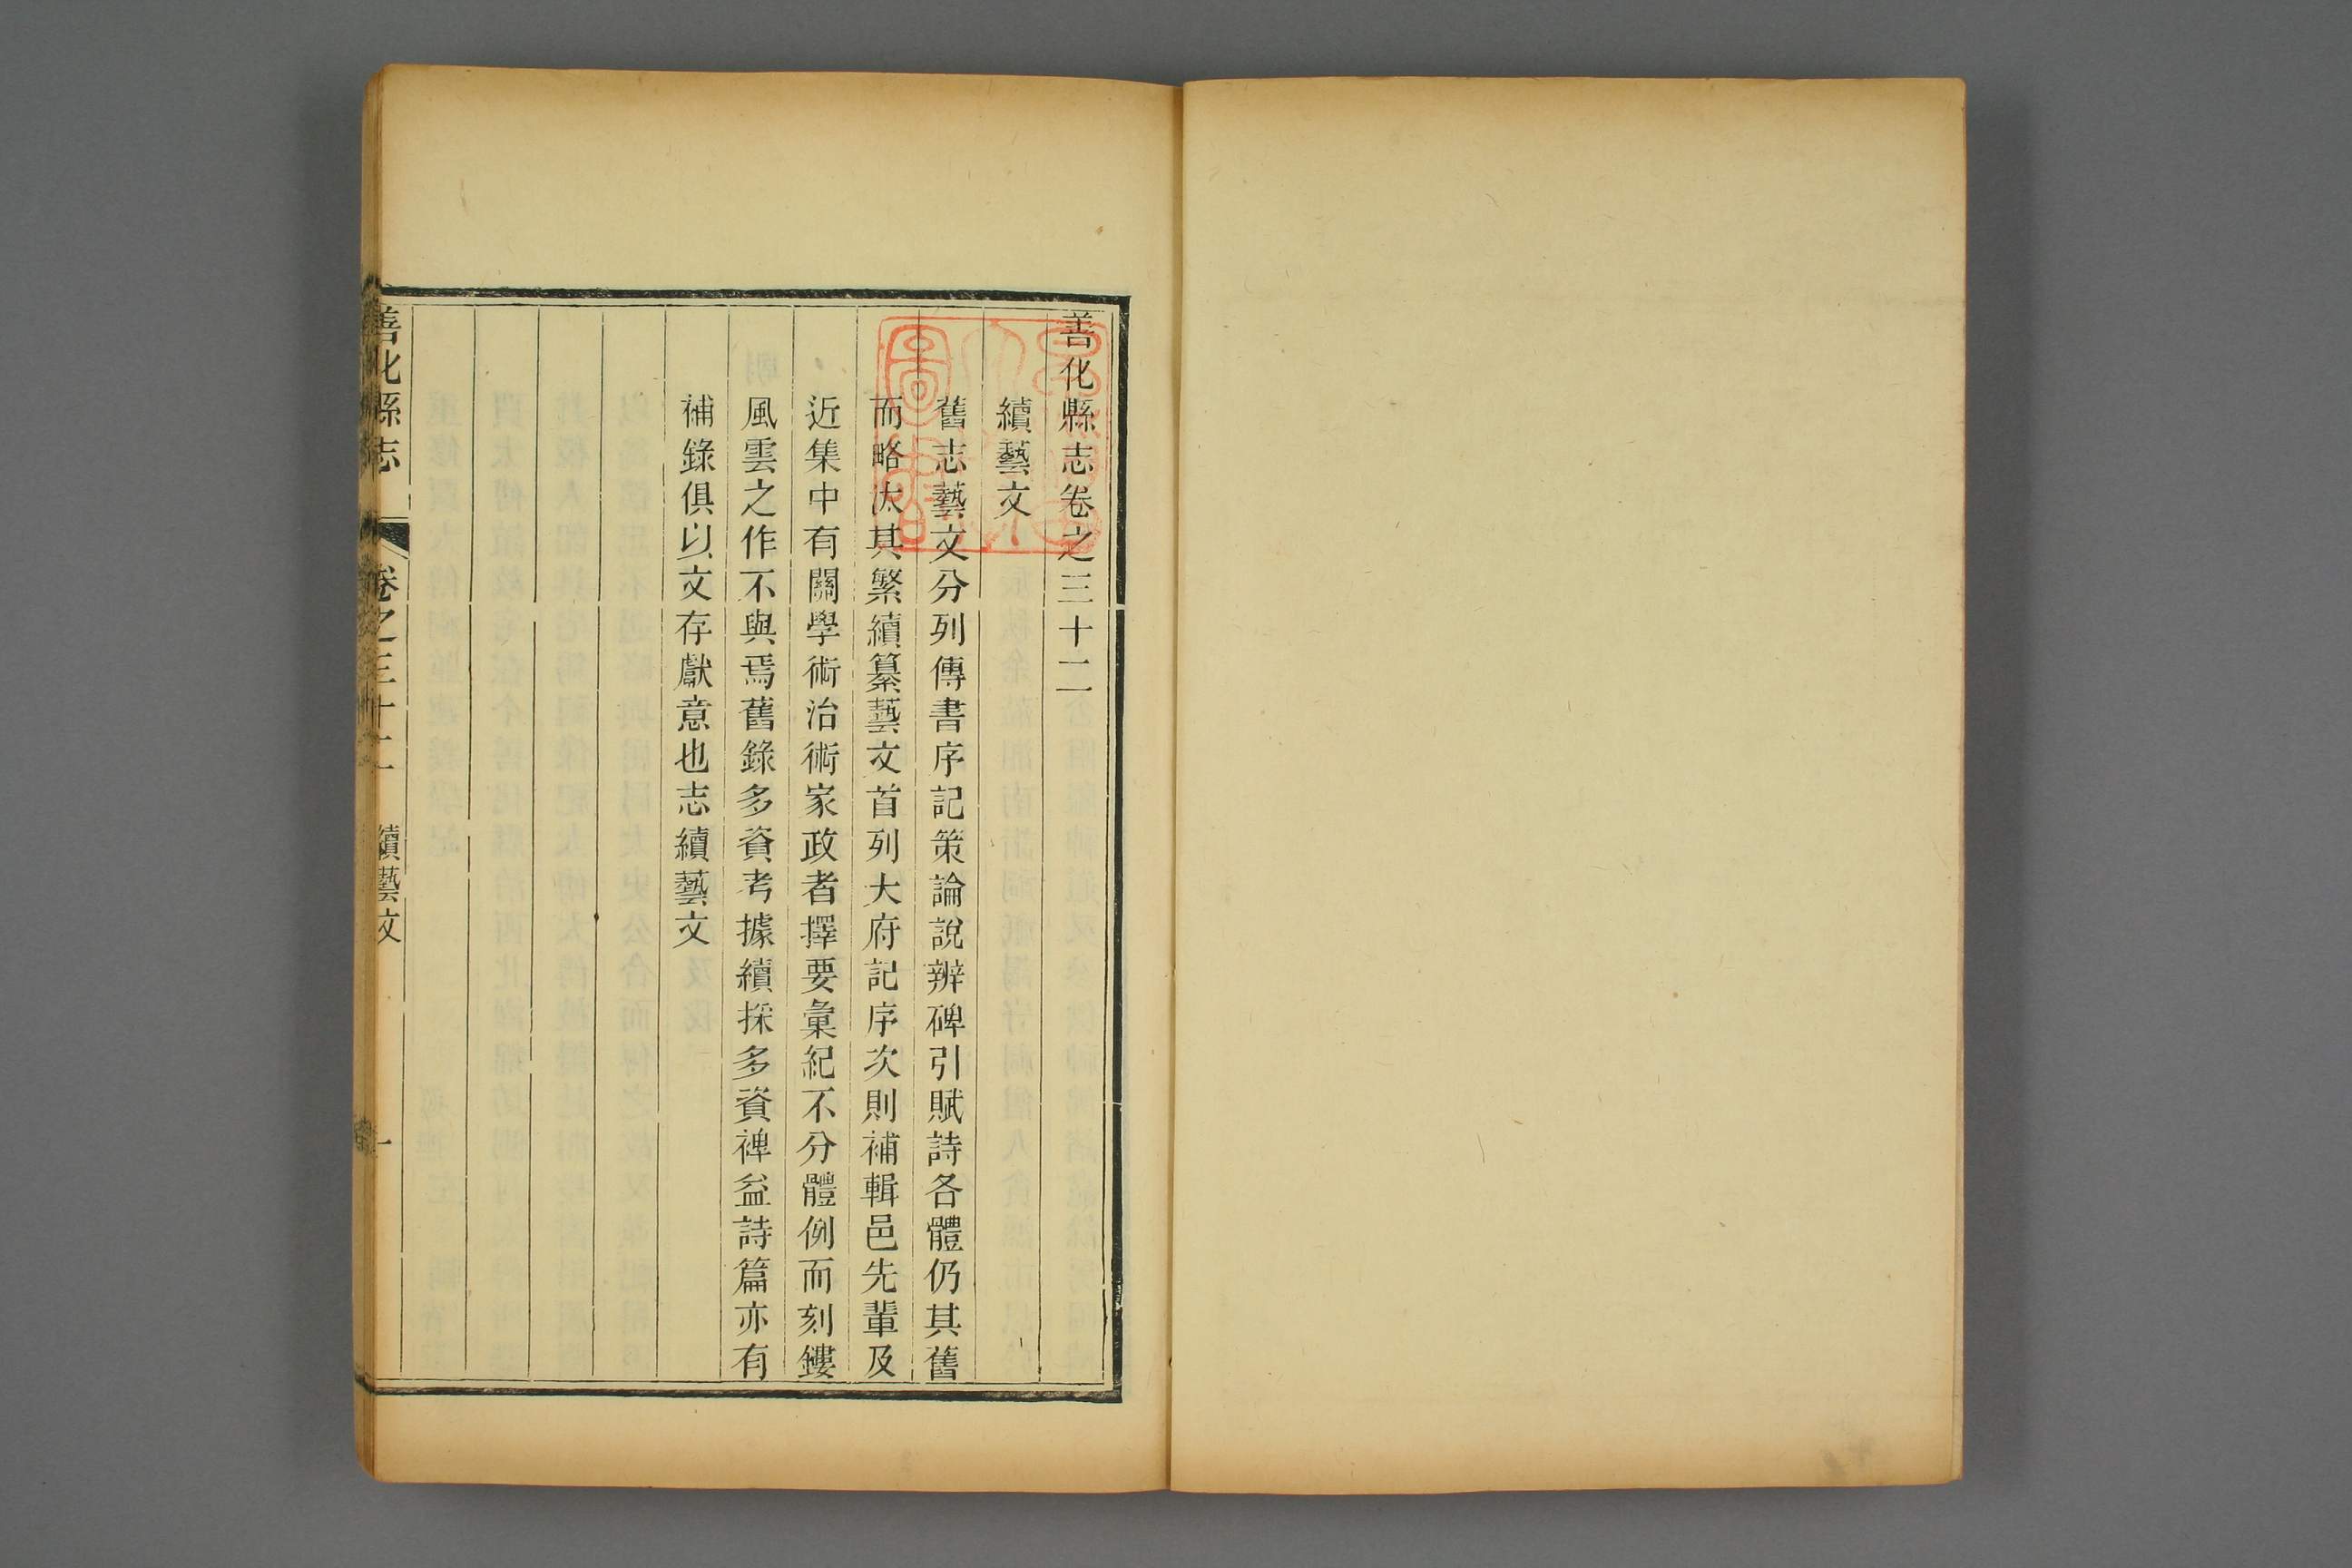 善化縣志卷之三十二
續藝文
舊志藝文分列傳書序記策論說辨碑引賦詩各體仍其舊
而略汰其繁續纂藝文首列大府記序次則補輯邑先輩及
近集中有關學術治術家政者擇要彙紀不分體例而刻鏤
風雲之作不與焉舊錄多資考據續採多資裨益詩篇亦有
補錄俱以文存獻意也志續藝文
善化縣志 卷之三十二 續藝文 一